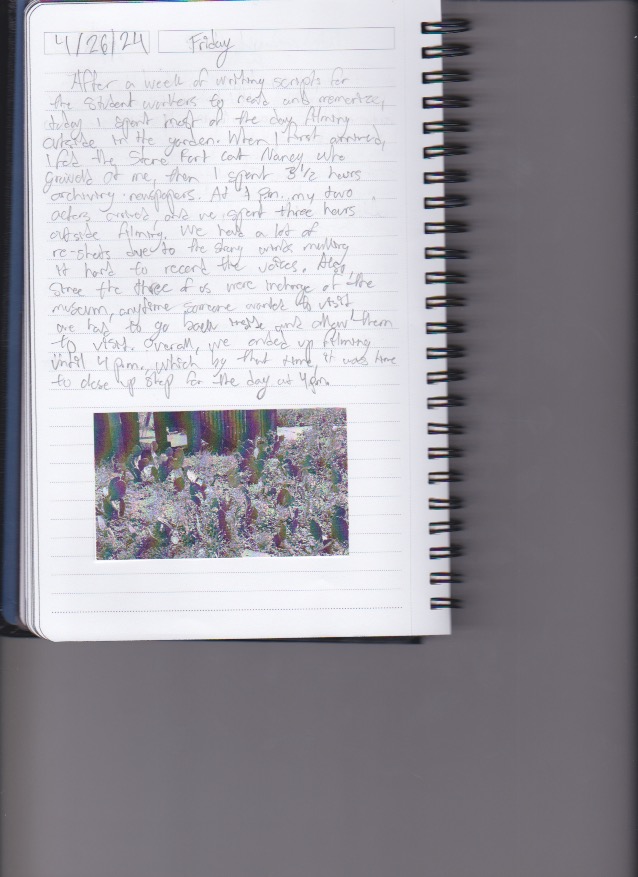 4/26/24 Friday
After a week of writing scripts for
the student workers to read and memorize,
today I spent most of the day filming
outside in the garden. When I first arrived,
I fed the Stone Fort cat Nancy who
growled at me, then I spent 3 1/2 hours
archiving newspapers. At 1 p.m. my two
actors arrived and we spent three hours
outside filming. We had a lot of
re-shots due to the strong winds making
it hard to record the voices. Also,
since the three of us were incharge of the
museum, anytime someone wanted to visit
we had to go back inside and allow them
to visit. Overall, we ended up filming
until 4 p.m., which by that time it was time
to close up shop for the day at 4pm.